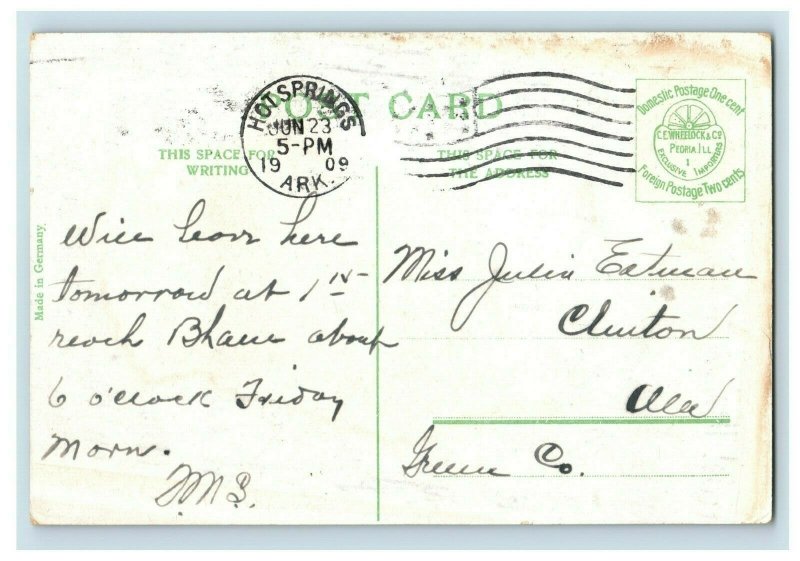 POST CARD
HOT SPRINGS
JUN 23
5-PM
1909
ARK.
Domestic Postage One cent
C.E. WHEELOCK & CO
PEORIA ILL
EXCLUSIVE IMPORTERS
Foreign Postage Two cents
THIS SPACE FOR
WRITING
THIS SPACE FOR
THE ADDRESS
Made in Germany
Will leave here
tomorrow at 1 15
reach Bham about
6 o'clock Friday
morn.
Miss Julia Eatman
Clinton
Ala
Greene Co.